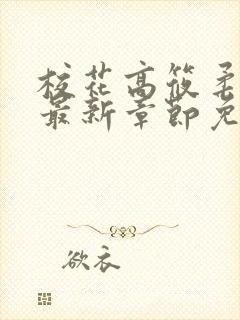 校花高筱柔
最新章節免
欲衣